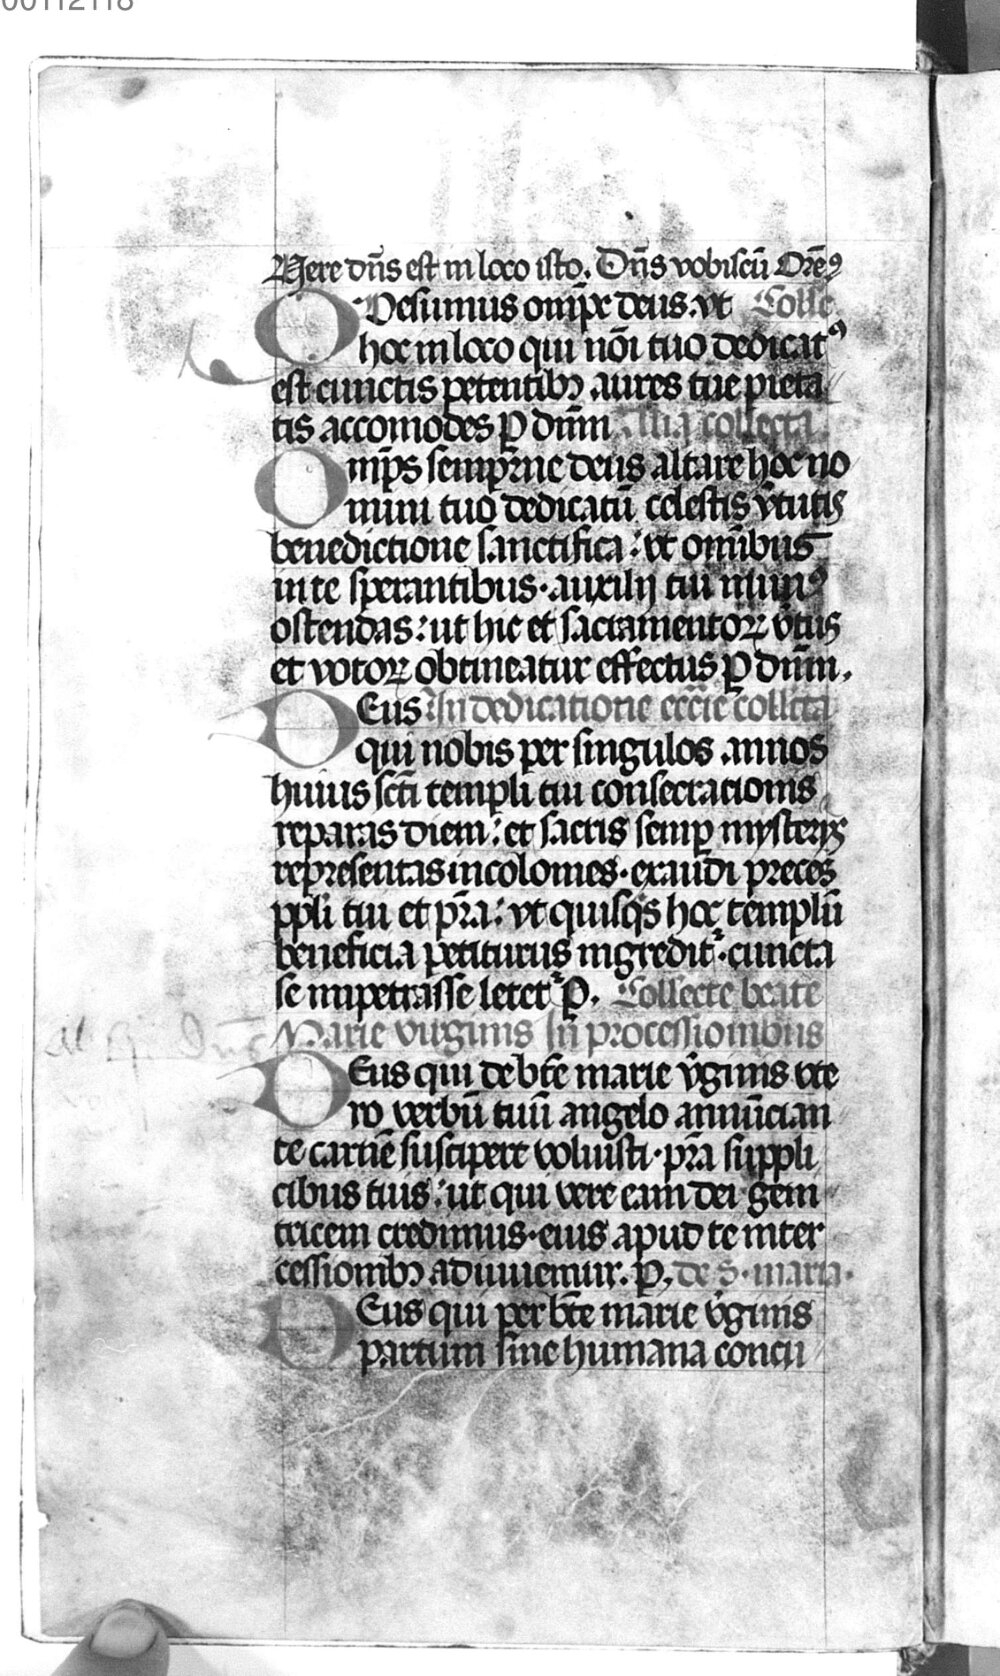 00112118
Vere dn̄s est in loco isto. Dn̄s vobiscū Orēꝯ
QVesumus omp̄x deus. vt Colle
hoc in loco qui nōi tuo dedicatꝰ
est cunctis petentibꝫ aures tue pieta
tis accomodes ꝑ dūm Alia collecta
Omp̄s semp̄rne deus altare hoc no
mini tuo dedicatū celestis v̄tutis
benedictione sanctifica: vt omībus
in te sperantibus. auxilij tui munꝰ
ostendas: ut hic et sacramentoꝝ v̄tus
et votoꝝ obtineatur effectus ꝑ dūm.
DEus In dedicatione ecc̄ie collcta
qui nobis per singulos annos
huius sct̄i templi tui consecracionis
reparas diem: et sacris semꝑ mysterijs
representas incolomes. exaudi preces
ppli tui et p̄ra: vt quisq̄s hoc templū
beneficia petiturus ingredit᷑. cuncta
se impetrasse letet᷑ ꝑ. Collecte beate
Marie virginis In processionibus
DEus qui de bt̄e marie v̄ginis vte
ro verbū tuū angelo annūcian
te carnē suscipere voluisti. p̄ra suppli
cibus tuis: ut qui vere eam dei geni
tricem credimus. eius apud te inter
cessionibꝫ adiuuemur. ꝑ. de S. maria.
DEus qui per bt̄e marie v̄ginis
partum sine humana concu